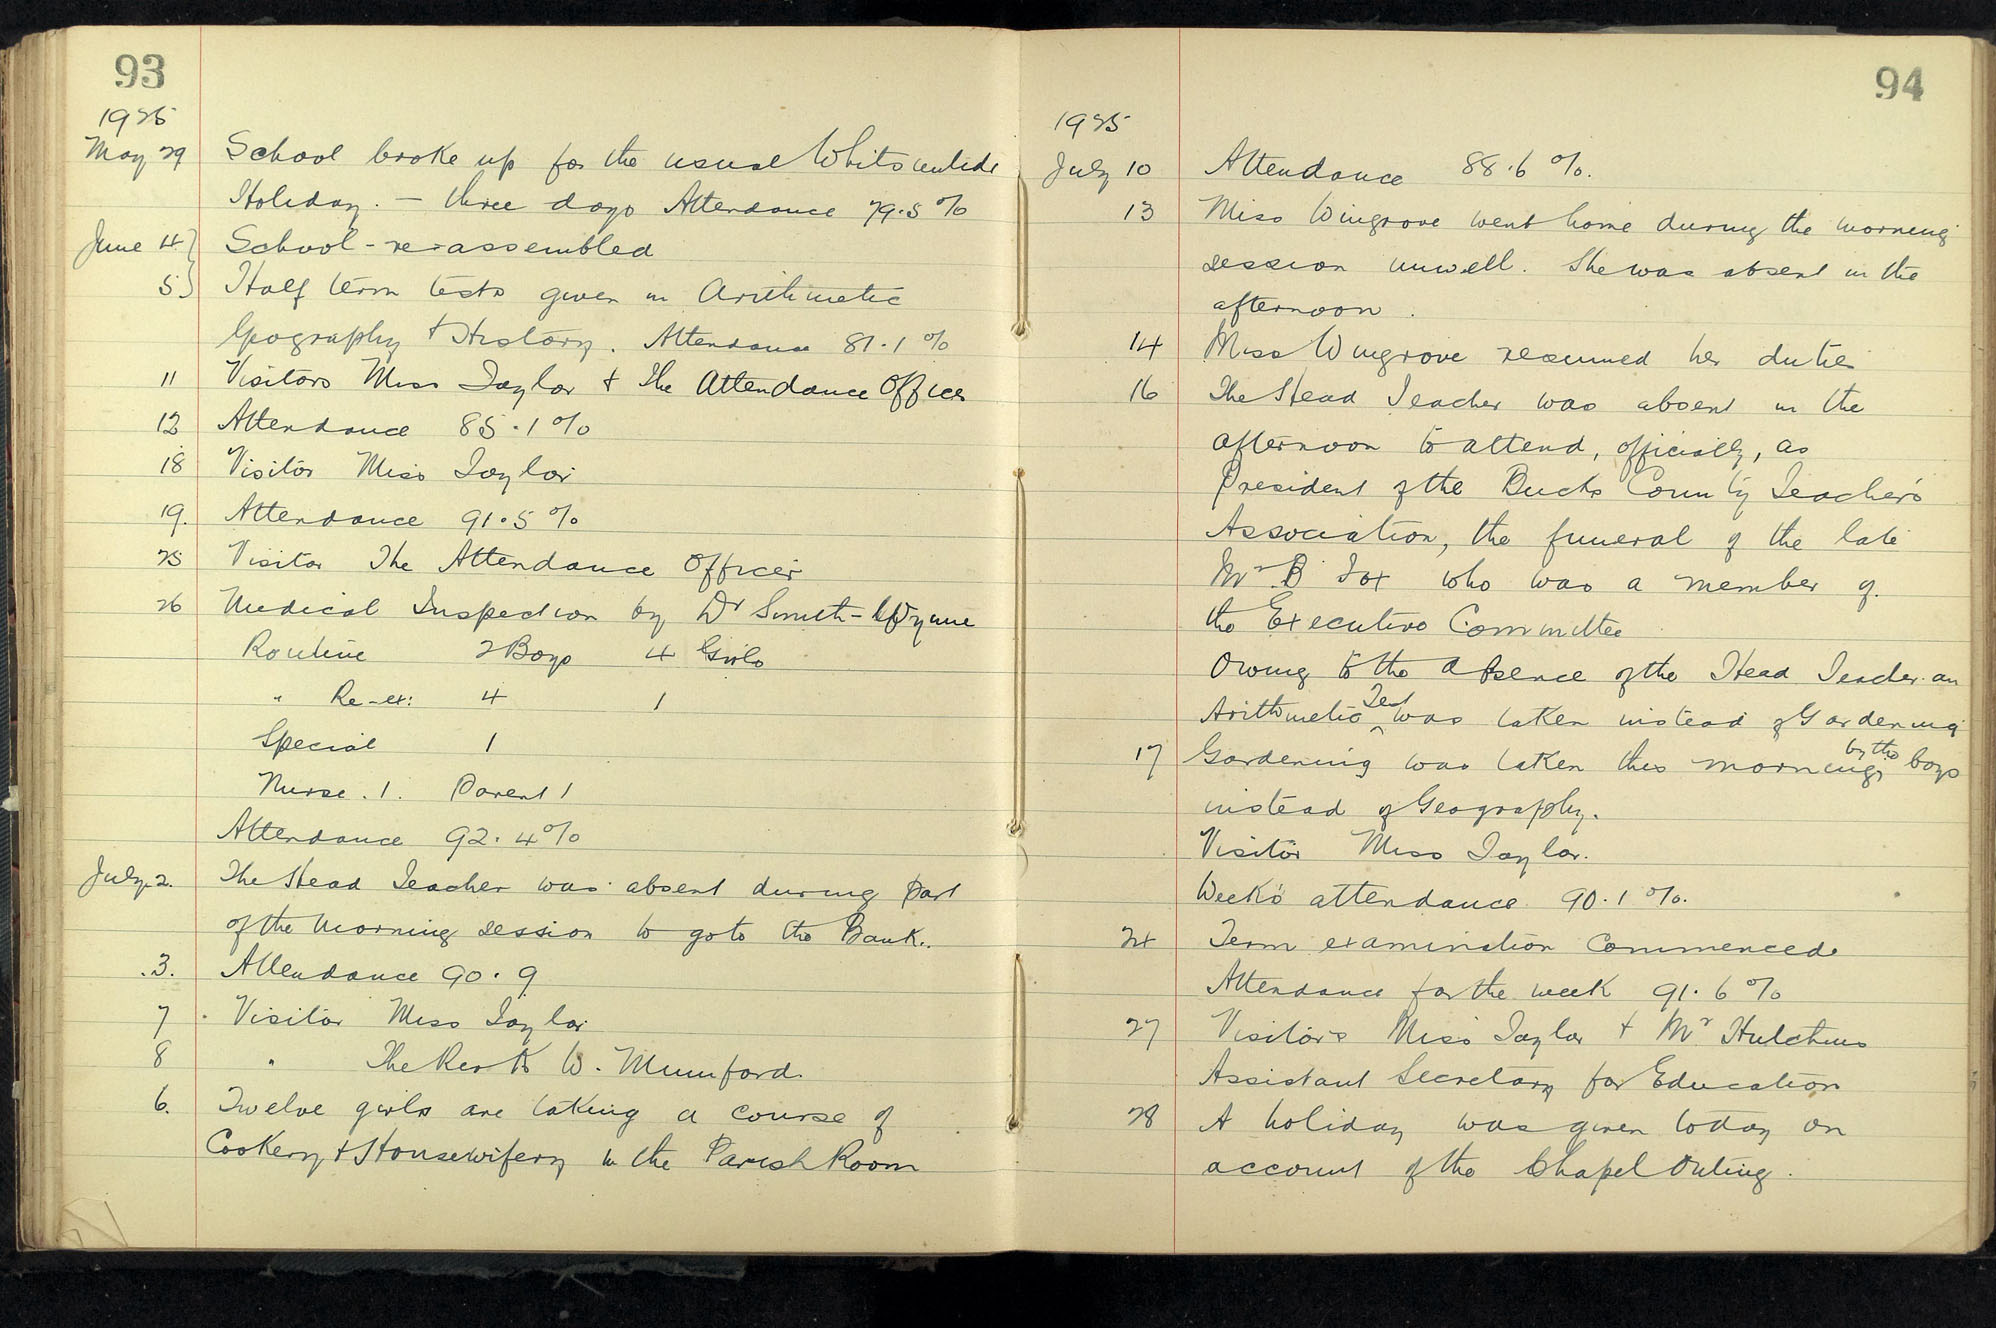 93
1925
May 29 School broke up for the usual Whitsuntide
Holiday. — three days Attendance 79.5 %
June 4 School - re-assembled
5 Half term tests given in Arithmetic
Geography + History. Attendance 81.1 %
11 Visitors Miss Taylor + the Attendance Officer
12 Attendance 85.1 %
18 Visitor Miss Taylor
19. Attendance 91.5 %
25 Visitor The Attendance Officer
26 Medical Inspection by Dr Smith-Wynne
Routine 2 Boys 4 Girls
" Re-ex: 4 1
Special 1
Nurse. 1. Parent 1
Attendance 92.4 %
July 2. The Head Teacher was absent during part
of the morning session to go to the Bank.
.3. Attendance 90.9
7 Visitor Miss Taylor
8 " The Rev W. Mumford.
6. Twelve girls are taking a course of
Cookery + Housewifery in the Parish Room
94
1925
July 10 Attendance 88.6 %.
13 Miss Wingrove went home during the morning
session unwell. She was absent in the
afternoon.
14 Miss Wingrove resumed her duties
16 The Head Teacher was absent in the
afternoon to attend, officially, as
President of the Bucks County Teacher's
Association, the funeral of the late
Mr B Fox who was a member of
the Executive Committee
Owing to the absence of the Head Teacher an
Arithmetic Test was taken instead of Gardening
17 Gardening was taken this morning by the boys
instead of Geography.
Visitor Miss Taylor.
Week's attendance 90.1 %.
24 Term examination commenced
Attendance for the week 91.6 %
27 Visitors Miss Taylor + Mr Hutchins
Assistant Secretary for Education
28 A holiday was given today on
account of the Chapel Outing.